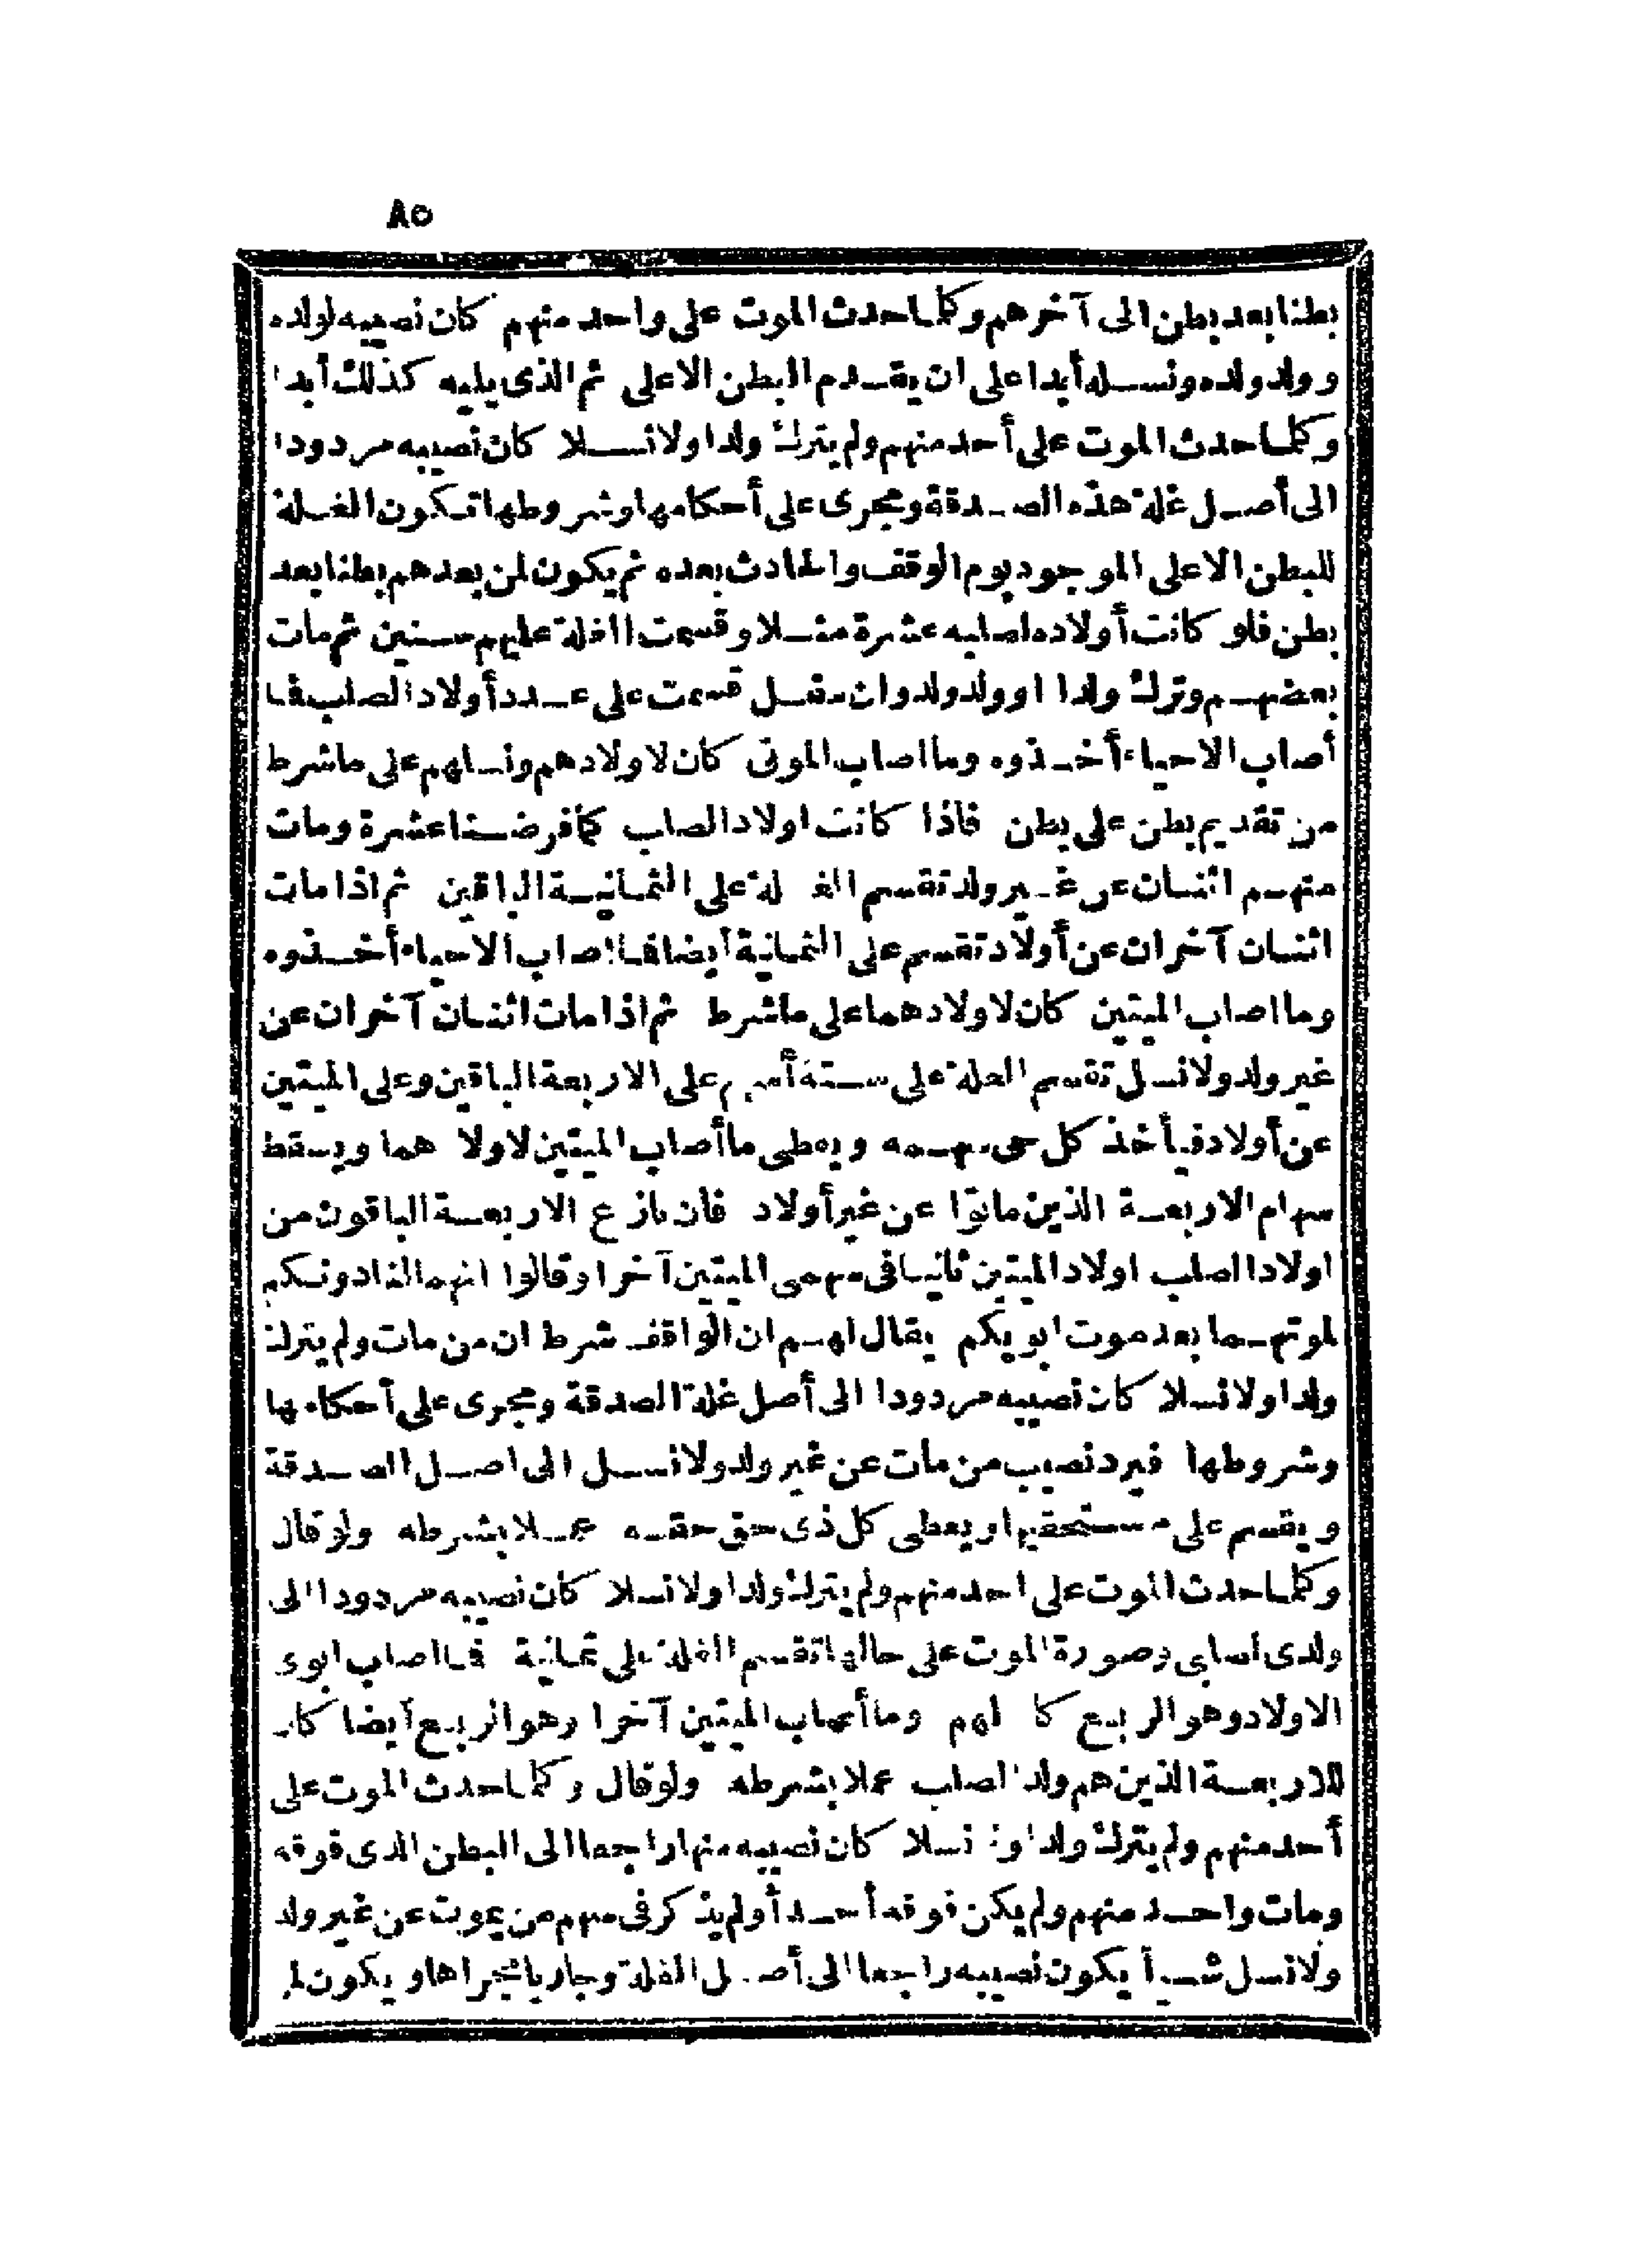 ٨٥
بطنا بعد بطن الى آخرهم وكلما حدث الموت على واحد منهم كان نصيبه لولده
وولد ولده ونسله أبدا على ان يقدم البطن الاعلى ثم الذى يليه كذلك أبدا
وكلما حدث الموت على أحد منهم ولم يترك ولدا ولا نسلا كان نصيبه مردودا
الى أصل غلة هذه الصدقة ومجرى على أحكامها وشروطها تكون الغلة
للبطن الاعلى الموجود يوم الوقف والحادث بعده ثم يكون لمن بعدهم بطنا بعد
بطن فلو كانت أولاده لصلبه عشرة مثلا وقسمت الغلة عليهم سنين ثم مات
بعضهم وترك ولدا او ولد ولد وان سفل قسمت على عدد أولاد الصلب فما
أصاب الاحياء أخذوه وما اصاب الموتى كان لاولادهم ونسلهم على ما شرط
من تقديم بطن على بطن فاذا كانت اولاد الصلب كما فرضنا عشرة ومات
منهم اثنان عن غير ولد تقسم الغلة على الثمانية الباقين ثم اذا مات
اثنان آخران عن أولاد تقسم على الثمانية أيضا فما اصاب الاحياء أخذوه
وما اصاب الميتين كان لاولادهما على ما شرط ثم اذا مات اثنان آخران عن
غير ولد ولا نسل تقسم الغلة على ستة أسهم على الاربعة الباقين وعلى الميتين
عن أولاد فيأخذ كل حى سهمه ويعطى ما أصاب الميتين لاولادهما ويسقط
سهام الاربعة الذين ماتوا عن غير أولاد فان نازع الاربعة الباقون من
اولاد الصلب اولاد الميتين ثانيا فى سهمى الميتين آخرا وقالوا انهما لنا دونكم
لموتهما بعد موت ابويكم يقال لهم ان الواقف شرط ان من مات ولم يترك
ولدا ولا نسلا كان نصيبه مردودا الى أصل غلة الصدقة ومجرى على أحكامها
وشروطها فيرد نصيب من مات عن غير ولد ولا نسل الى اصل الصدقة
ويقسم على مستحقيها ويعطى كل ذى حق حقه عملا بشرطه ولو قال
وكلما حدث الموت على احد منهم ولم يترك ولدا ولا نسلا كان نصيبه مردودا الى
ولدى لصلبى وصورة الموت على حالها تقسم الغلة على ثمانية فما اصاب ابوى
الاولاد وهو الربع كان لهم وما أصاب الميتين آخرا وهو الربع أيضا كان
للاربعة الذين هم ولد الصلب عملا بشرطه ولو قال وكلما حدث الموت على
أحد منهم ولم يترك ولدا ولا نسلا كان نصيبه منها راجعا الى البطن الذى فوقه
ومات واحد منهم ولم يكن فوقه أحد أو لم يذكر فى سهم من يموت عن غير ولد
ولا نسل شيأ يكون نصيبه راجعا الى أصل الغلة وجاريا مجراها ويكون